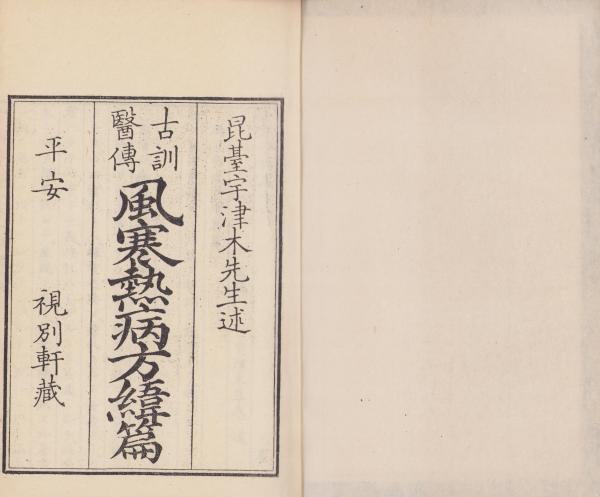 昆臺宇津木先生述
古訓
醫傳
風寒熱病方緯篇
平安 視別軒藏